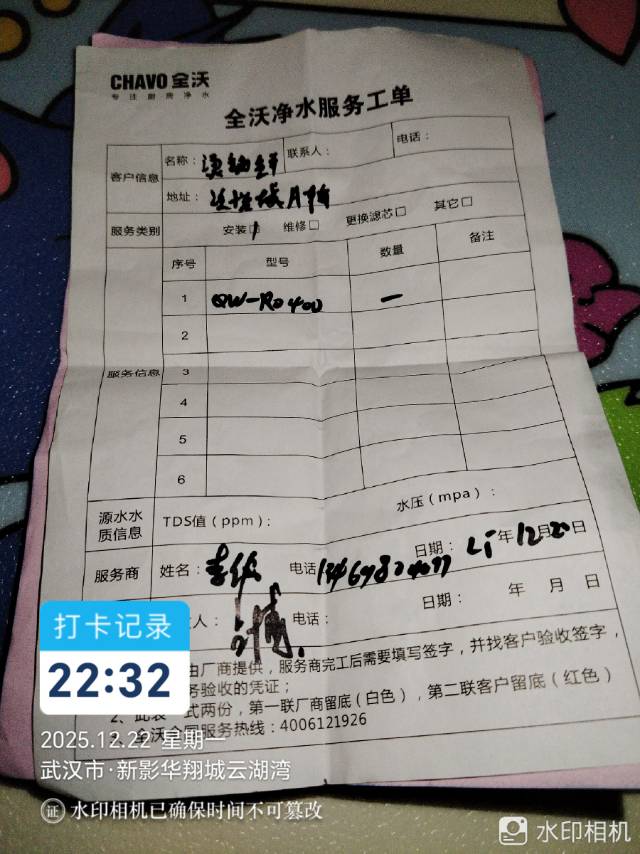 CHAVO 全沃
专注厨房净水
全沃净水服务工单
客户信息
名称：
联系人：
电话：
地址：
服务类别
安装□
维修□
更换滤芯□
其它□
服务信息
序号
型号
数量
备注
1
QW-RO400
一
2
3
4
5
6
源水水质信息
TDS值（ppm）：
水压（mpa）：
服务商
姓名：
电话
日期：
年12月20日
人：
电话：
日期：
年 月 日
由厂商提供，服务商完工后需要填写签字，并找客户验收签字，
务验收的凭证；
2、此表一式两份，第一联厂商留底（白色），第二联客户留底（红色）
3、全沃全国服务热线：4006121926
打卡记录
22:32
2025.12.22 星期一
武汉市·新影华翔城云湖湾
证 水印相机已确保时间不可篡改
水印相机